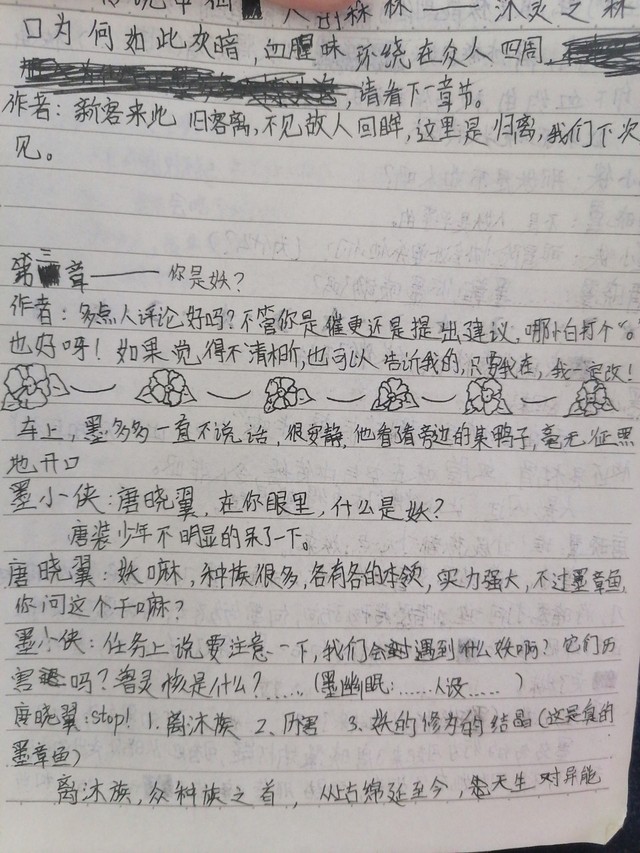 人的森林——深灵之森
口为何如此次暗，血腥味环绕在众人四周，
，请看下一章节。
作者：新客来此 旧客离，不见故人回眸，这里是归离，我们下次
见。
第三章——你是妖？
作者：多点人评论好吗？不管你是催更还是提出建议，哪怕打个“。”
也好呀！如果觉得不清楚，也可以告诉我的，只要我在，我一定改！
车上，墨多多一直不说话，很安静，他看着旁边的某鸭子，毫无征兆
地开口
墨小侠：唐晓翼，在你眼里，什么是妖？
唐装少年不明显的呆了一下。
唐晓翼：妖嘛，种族很多，各有各的本领，实力强大，不过墨章鱼，
你问这个干嘛？
墨小侠：任务上说要注意一下，我们会遇到什么妖啊？它们厉
害吗？兽灵核是什么？……（墨幽眠：……人设……）
唐晓翼：stop！1.离沐族 2.厉害 3.妖的修为的结晶（这是真的
墨章鱼）
离沐族，众种族之首，从古绵延至今，天生对异能